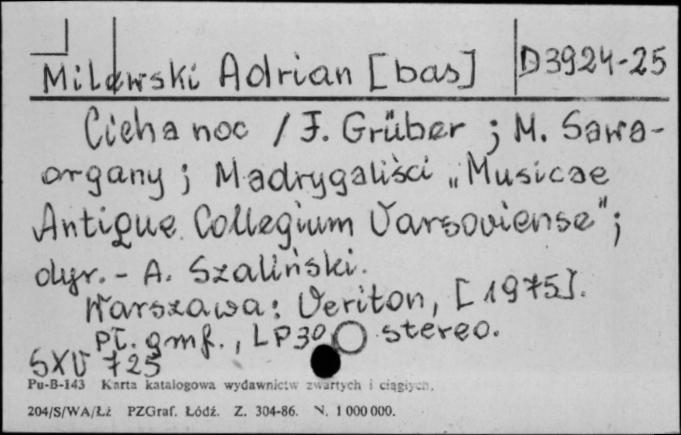 Milewski Adrian [bas] D3924-25
Cicha noc / F. Grüber ; M. Sawa-
organy ; Madrygaliści „Musicae
Antique Collegium Varsoviense";
dyr. - A. Szaliński.
Warszawa: Veriton, [1975].
Pł. gmf., LP30 stereo.
SXV 725
Pu-B-143 Karta katalogowa wydawnictw zwartych i ciągłych.
204/S/WA/Łż PZGraf. Łódź. Z. 304-86. N. 1 000 000.